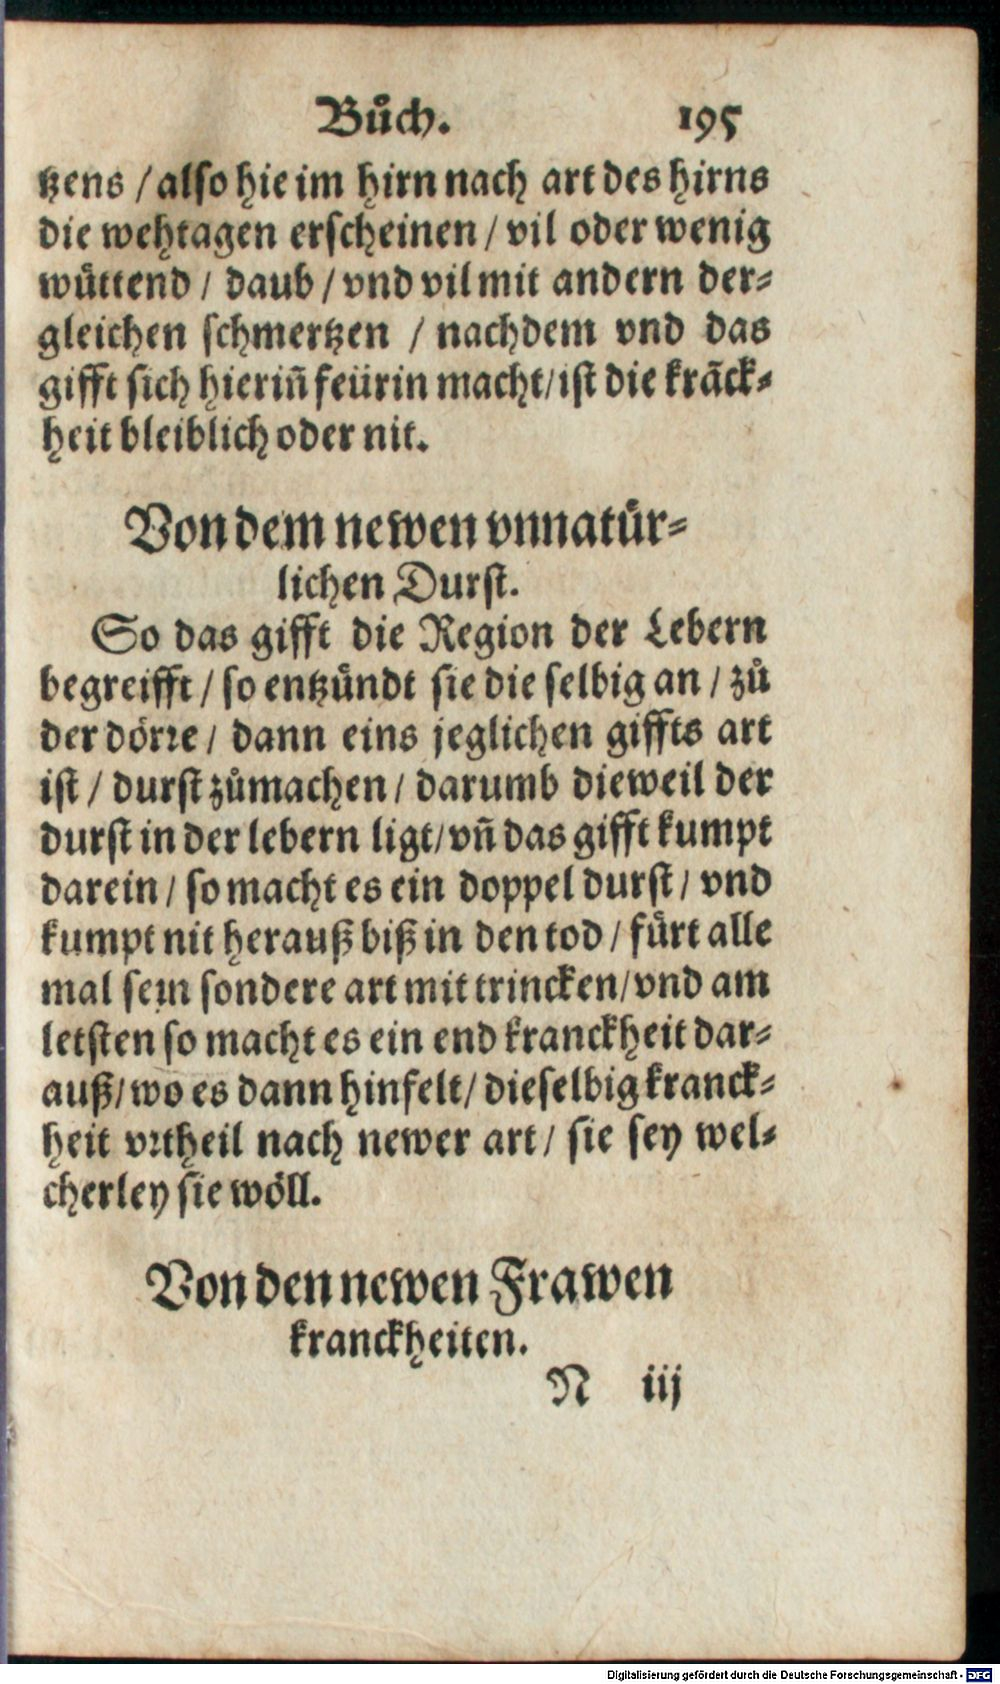 Bůch. 195
tzens / also hie im hirn nach art des hirns
die wehtagen erscheinen / vil oder wenig
wuͤttend / daub / vnd vil mit andern der⸗
gleichen schmertzen / nachdem vnd das
gifft sich hieriñ feürin macht / ist die kräck⸗
heit bleiblich oder nit.
Von dem newen vnnatuͤr⸗
lichen Durst.
So das gifft die Region der Lebern
begreifft / so entzuͤndt sie die selbig an / zů
der doͤrꝛe / dann eins jeglichen giffts art
ist / durst zůmachen / darumb dieweil der
durst in der lebern ligt / vñ das gifft kumpt
darein / so macht es ein doppel durst / vnd
kumpt nit herauß biß in den tod / fuͤrt alle
mal sein sondere art mit trincken / vnd am
letsten so macht es ein end kranckheit dar⸗
auß / wo es dann hinfelt / dieselbig kranck⸗
heit vꝛtheil nach newer art / sie sey wel⸗
cherley sie woͤll.
Von den newen Frawen
kranckheiten.
N iij
Digitalisierung gefördert durch die Deutsche Forschungsgemeinschaft - DFG